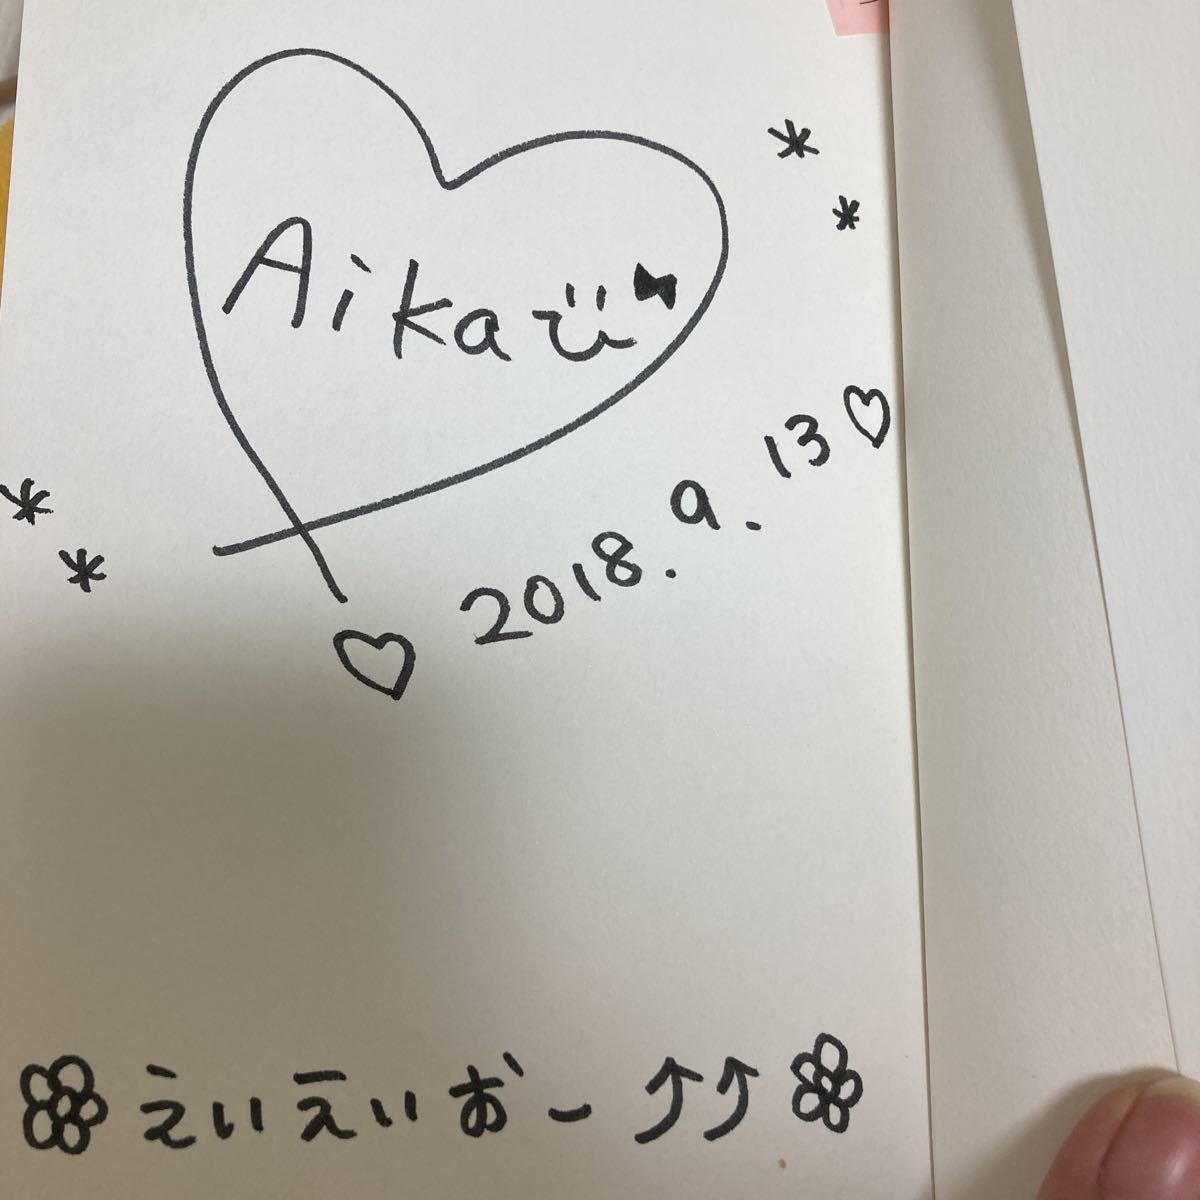 Aikaひ
♡ 2018.9.13♡
えいえいおー⤴⤴